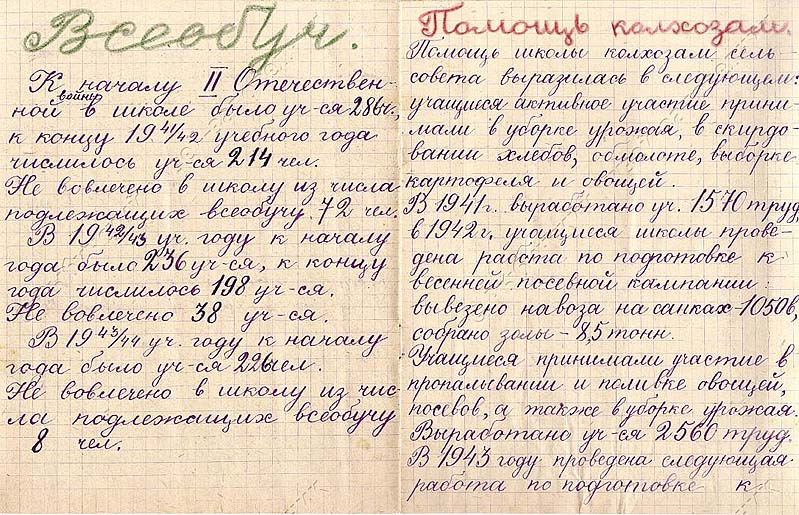 Всеобуч.
К началу II Отечествен-
войны
ной в школе было уч-ся 286 ч.,
к концу 1941/42 учебного года
числилось уч-ся 214 чел.
Не вовлечено в школу из числа
подлежащих всеобучу 72 чел.
В 1942/43 уч. году к началу
года было 236 уч-ся, к концу
года числилось 198 уч-ся.
Не вовлечено 38 уч-ся.
В 1943/44 уч. году к началу
года было уч-ся 226 чел.
Не вовлечено в школу из чис-
ла подлежащих всеобучу
8 чел.
Помощь колхозам.
Помощь школы колхозам сель-
совета выразилась в следующем:
учащиеся активное участие прини-
мали в уборке урожая, в скирдо-
вании хлебов, обмолоте, выборке
картофеля и овощей.
В 1941 г. выработано уч. 1570 труд.
в 1942 г. учащиеся школы прове-
дена работа по подготовке к
весенней посевной кампании:
вывезено навоза на санках - 1050 в,
собрано золы - 8,5 тонн.
Учащиеся принимали участие в
пропалывании и поливке овощей,
посевов, а также в уборке урожая.
Выработано уч-ся 2560 труд.
В 1943 году проведена следующая
работа по подготовке к